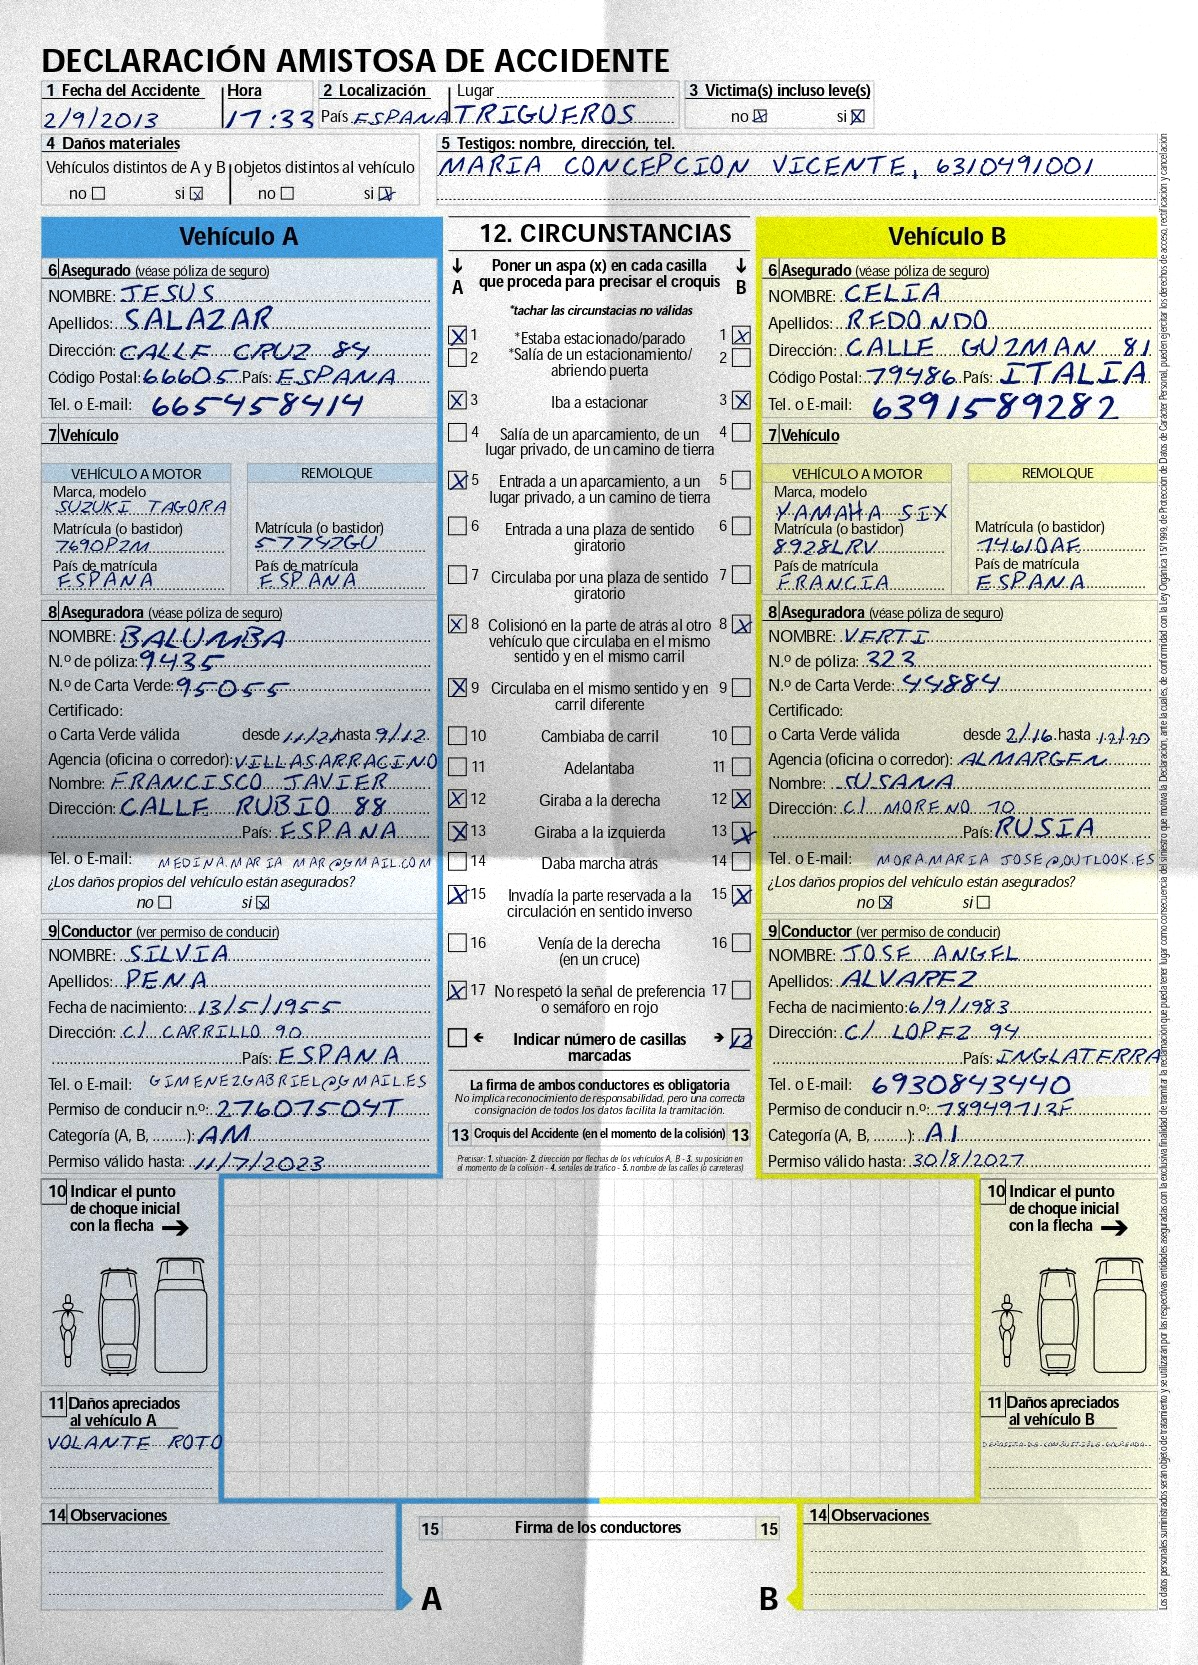 DECLARACIÓN AMISTOSA DE ACCIDENTE
1 Fecha del Accidente Hora 2 Localización Lugar 3 Victima(s) incluso leve(s)
2/9/2013 17:33 País ESPAÑA TRIGUEROS no si
4 Daños materiales
Vehículos distintos de A y B objetos distintos al vehículo
no si no si
5 Testigos: nombre, dirección, tel.
MARIA CONCEPCION VICENTE, 6310491001
Vehículo A
6 Asegurado (véase póliza de seguro)
NOMBRE: JESUS
Apellidos: SALAZAR
Dirección: CALLE CRUZ 84
Código Postal: 66605 País: ESPANA
Tel. o E-mail: 665458414
7 Vehículo
VEHÍCULO A MOTOR REMOLQUE
Marca, modelo
SUZUKI TAGORA
Matrícula (o bastidor) Matrícula (o bastidor)
7690PZM 57752GU
País de matrícula País de matrícula
ESPANA ESPANA
8 Aseguradora (véase póliza de seguro)
NOMBRE: BALUMBA
N.º de póliza: 9435
N.º de Carta Verde: 95055
Certificado:
o Carta Verde válida desde 11/21 hasta 9/12
Agencia (oficina o corredor): VILLASARRACINO
Nombre: FRANCISCO JAVIER
Dirección: CALLE RUBIO 88
País: ESPANA
Tel. o E-mail: MEDINA.MARIA MAR@GMAIL.COM
¿Los daños propios del vehículo están asegurados?
no si
9 Conductor (ver permiso de conducir)
NOMBRE: SILVIA
Apellidos: PENA
Fecha de nacimiento: 13/5/1955
Dirección: C/ CARRILLO 90
País: ESPANA
Tel. o E-mail: GIMENEZGABRIEL@GMAIL.ES
Permiso de conducir n.º: 27607504T
Categoría (A, B, ........): AM
Permiso válido hasta: 11/7/2023
10 Indicar el punto
de choque inicial
con la flecha
11 Daños apreciados
al vehículo A
VOLANTE ROTO
14 Observaciones
12. CIRCUNSTANCIAS
Poner un aspa (x) en cada casilla
que proceda para precisar el croquis
A B
*tachar las circunstacias no válidas
1 *Estaba estacionado/parado 1
2 *Salía de un estacionamiento/ 2
abriendo puerta
3 Iba a estacionar 3
4 Salía de un aparcamiento, de un 4
lugar privado, de un camino de tierra
5 Entrada a un aparcamiento, a un 5
lugar privado, a un camino de tierra
6 Entrada a una plaza de sentido 6
giratorio
7 Circulaba por una plaza de sentido 7
giratorio
8 Colisionó en la parte de atrás al otro 8
vehículo que circulaba en el mismo
sentido y en el mismo carril
9 Circulaba en el mismo sentido y en 9
carril diferente
10 Cambiaba de carril 10
11 Adelantaba 11
12 Giraba a la derecha 12
13 Giraba a la izquierda 13
14 Daba marcha atrás 14
15 Invadía la parte reservada a la 15
circulación en sentido inverso
16 Venía de la derecha 16
(en un cruce)
17 No respetó la señal de preferencia 17
o semáforo en rojo
Indicar número de casillas 12
marcadas
La firma de ambos conductores es obligatoria
No implica reconocimiento de responsabilidad, pero una correcta
consignación de todos los datos facilita la tramitación.
13 Croquis del Accidente (en el momento de la colisión) 13
Precisar: 1. situación- 2. dirección por flechas de los vehículos A, B - 3. su posición en
el momento de la colisión - 4. señales de tráfico - 5. nombre de las calles (o carreteras)
15 Firma de los conductores 15
A B
Vehículo B
6 Asegurado (véase póliza de seguro)
NOMBRE: CELIA
Apellidos: REDONDO
Dirección: CALLE GUZMAN 81
Código Postal: 79486 País: ITALIA
Tel. o E-mail: 6391589282
7 Vehículo
VEHÍCULO A MOTOR REMOLQUE
Marca, modelo
YAMAHA SIX
Matrícula (o bastidor) Matrícula (o bastidor)
8928LRV 7461DAE
País de matrícula País de matrícula
FRANCIA ESPANA
8 Aseguradora (véase póliza de seguro)
NOMBRE: VERTI
N.º de póliza: 323
N.º de Carta Verde: 44884
Certificado:
o Carta Verde válida desde 2/16 hasta 12/20
Agencia (oficina o corredor): ALMARGEN
Nombre: SUSANA
Dirección: C/ MORENO 70
País: RUSIA
Tel. o E-mail: MORA.MARIA JOSE@OUTLOOK.ES
¿Los daños propios del vehículo están asegurados?
no si
9 Conductor (ver permiso de conducir)
NOMBRE: JOSE ANGEL
Apellidos: ALVAREZ
Fecha de nacimiento: 6/9/1983
Dirección: C/ LOPEZ 94
País: INGLATERRA
Tel. o E-mail: 6930843440
Permiso de conducir n.º: 78949713F
Categoría (A, B, ........): A1
Permiso válido hasta: 30/8/2027
10 Indicar el punto
de choque inicial
con la flecha
11 Daños apreciados
al vehículo B
14 Observaciones